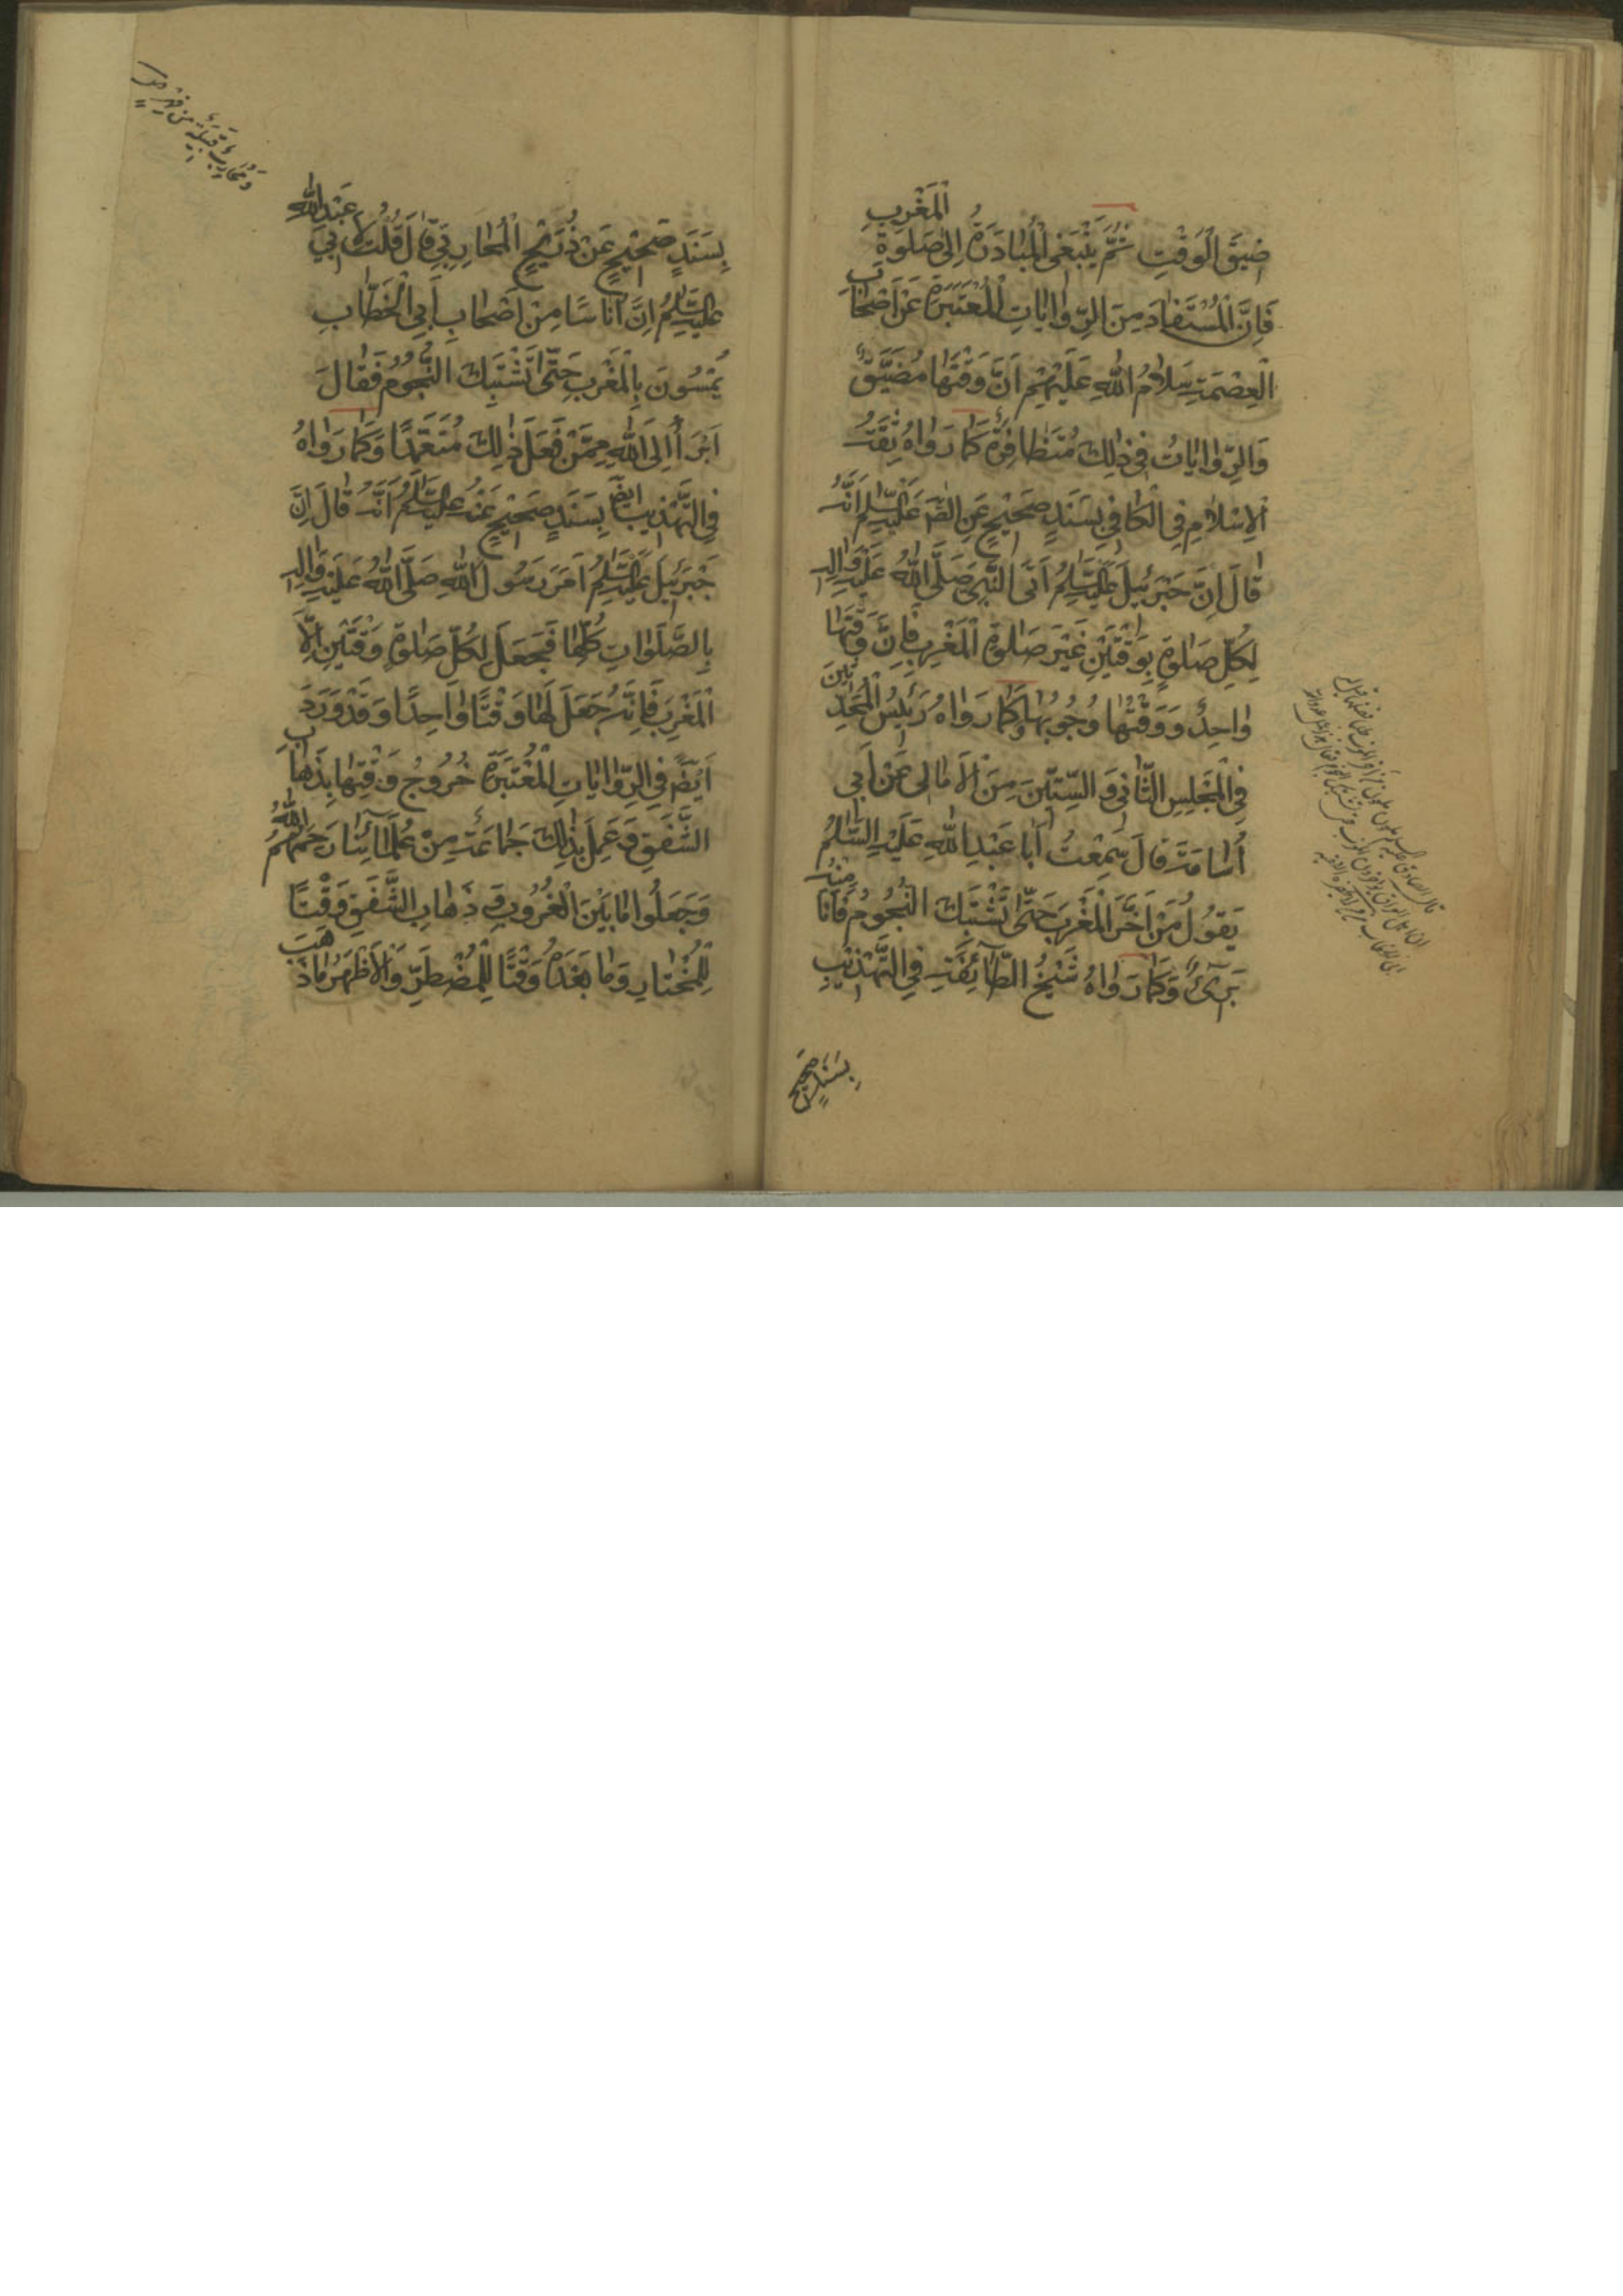 ضِيقَ الْوَقْتِ ثُمَّ يَنْبَغِى الْمُبَادَرَةُ اِلىٰ صَلوٰةِ الْمَغْرِبِ
فَاِنَّ الْمُسْتَفَادَ مِنَ الرِّوٰايٰاتِ الْمُعْتَبَرَةِ عَنْ اَصْحٰابِ
الْعِصْمَةِ سَلاٰمُ اللّٰهِ عَلَيْهِمْ اَنَّ وَقْتَهٰا مُضَيَّقٌ
وَالرِّوٰايٰاتُ فِى ذٰلِكَ مُتَظٰافِرَةٌ كَمٰا رَوٰاهُ ثِقَةُ
الْاِسْلاٰمِ فِى الْكٰافِى بِسَنَدٍ صَحٖيحٍ عَنِ الصّٰ عَلَيْهِ السَّلٰمُ اَنَّهُ
قٰالَ اِنَّ جَبْرَئٖيلَ عَلَيْهِ السَّلٰمُ اَتَى النَّبِىَّ صَلَّى اللّٰهُ عَلَيْهِ وَاٰلِهِ
لِكُلِّ صَلوٰةٍ بِوَقْتَيْنِ غَيْرَ صَلوٰةِ الْمَغْرِبِ فَاِنَّ وَقْتَهٰا
وٰاحِدٌ وَ وَقْتُهٰا وُجُوبُهٰا وَكَمٰا رَوٰاهُ رَئٖيسُ الْمُحَدِّثٖينَ
فِى الْمَجْلِسِ الثّٰانِى وَ السِّتّٖينَ مِنَ الْاَمٰالِى عَنْ اَبِى
اُسٰامَةَ قٰالَ سَمِعْتُ اَبٰا عَبْدِ اللّٰهِ عَلَيْهِ السَّلٰمُ
يَقُولُ مَنْ اَخَّرَ الْمَغْرِبَ حَتّٰى تَشْتَبِكَ النُّجُومُ فَاَنَا مِنْهُ
بَرٖىءٌ وَ كَمٰا رَوٰاهُ شَيْخُ الطّٰائِفَةِ فِى التَّهْذٖيبِ
بِسَنَدٍ صَحٖيحٍ
بِسَنَدٍ صَحٖيحٍ عَنْ ذُرَيْحٍ الْمُحٰارِبِىِّ قٰالَ قُلْتُ لِاَبٖى عَبْدِ اللّٰهِ
عَلَيْهِ السَّلٰمُ اِنَّ اُنٰاسًا مِنْ اَصْحٰابِ اَبِى الْخَطّٰابِ
يُمْسُونَ بِالْمَغْرِبِ حَتّٰى تَشْتَبِكَ النُّجُومُ فَقٰالَ
اَبْرَأُ اِلَى اللّٰهِ مِمَّنْ فَعَلَ ذٰلِكَ مُتَعَمِّدًا وَكَمٰا رَوٰاهُ
فِى التَّهْذٖيبِ اَيْضً بِسَنَدٍ صَحٖيحٍ عَنْهُ عَلَيْهِ السَّلٰمُ اَنَّهُ قٰالَ اِنَّ
جَبْرَئٖيلَ عَلَيْهِ السَّلٰمُ اَمَرَ رَسُولَ اللّٰهِ صَلَّى اللّٰهُ عَلَيْهِ وَاٰلِهِ
بِالصَّلَوٰاتِ كُلِّهٰا فَجَعَلَ لِكُلِّ صَلٰوةٍ وَقْتَيْنِ اِلاَّ
الْمَغْرِبَ فَاِنَّهُ جَعَلَ لَهٰا وَقْتًا وٰاحِدًا وَ قَدْ وَرَدَ
اَيْضً فِى الرِّوٰايٰاتِ الْمُعْتَبَرَةِ خُرُوجُ وَقْتِهٰا بِذَهٰابِ
الشَّفَقِ وَ عَمِلَ بِذٰلِكَ جَمٰاعَةٌ مِنْ عُلَمٰائِنٰا رَحِمَهُمُ اللّٰهُ
وَجَعَلُوا مٰا بَيْنَ الْغُرُوبِ وَ ذَهٰابِ الشَّفَقِ وَقْتًا
لِلْمُخْتٰارِ وَ مٰا بَعْدَهُ وَقْتًا لِلْمُضْطَرِّ وَ الْاَظْهَرُ مٰا ذَهَبَ
وَ مُحٰارِب قَبٖيلَةٌ مِنْ فِهْرٍ